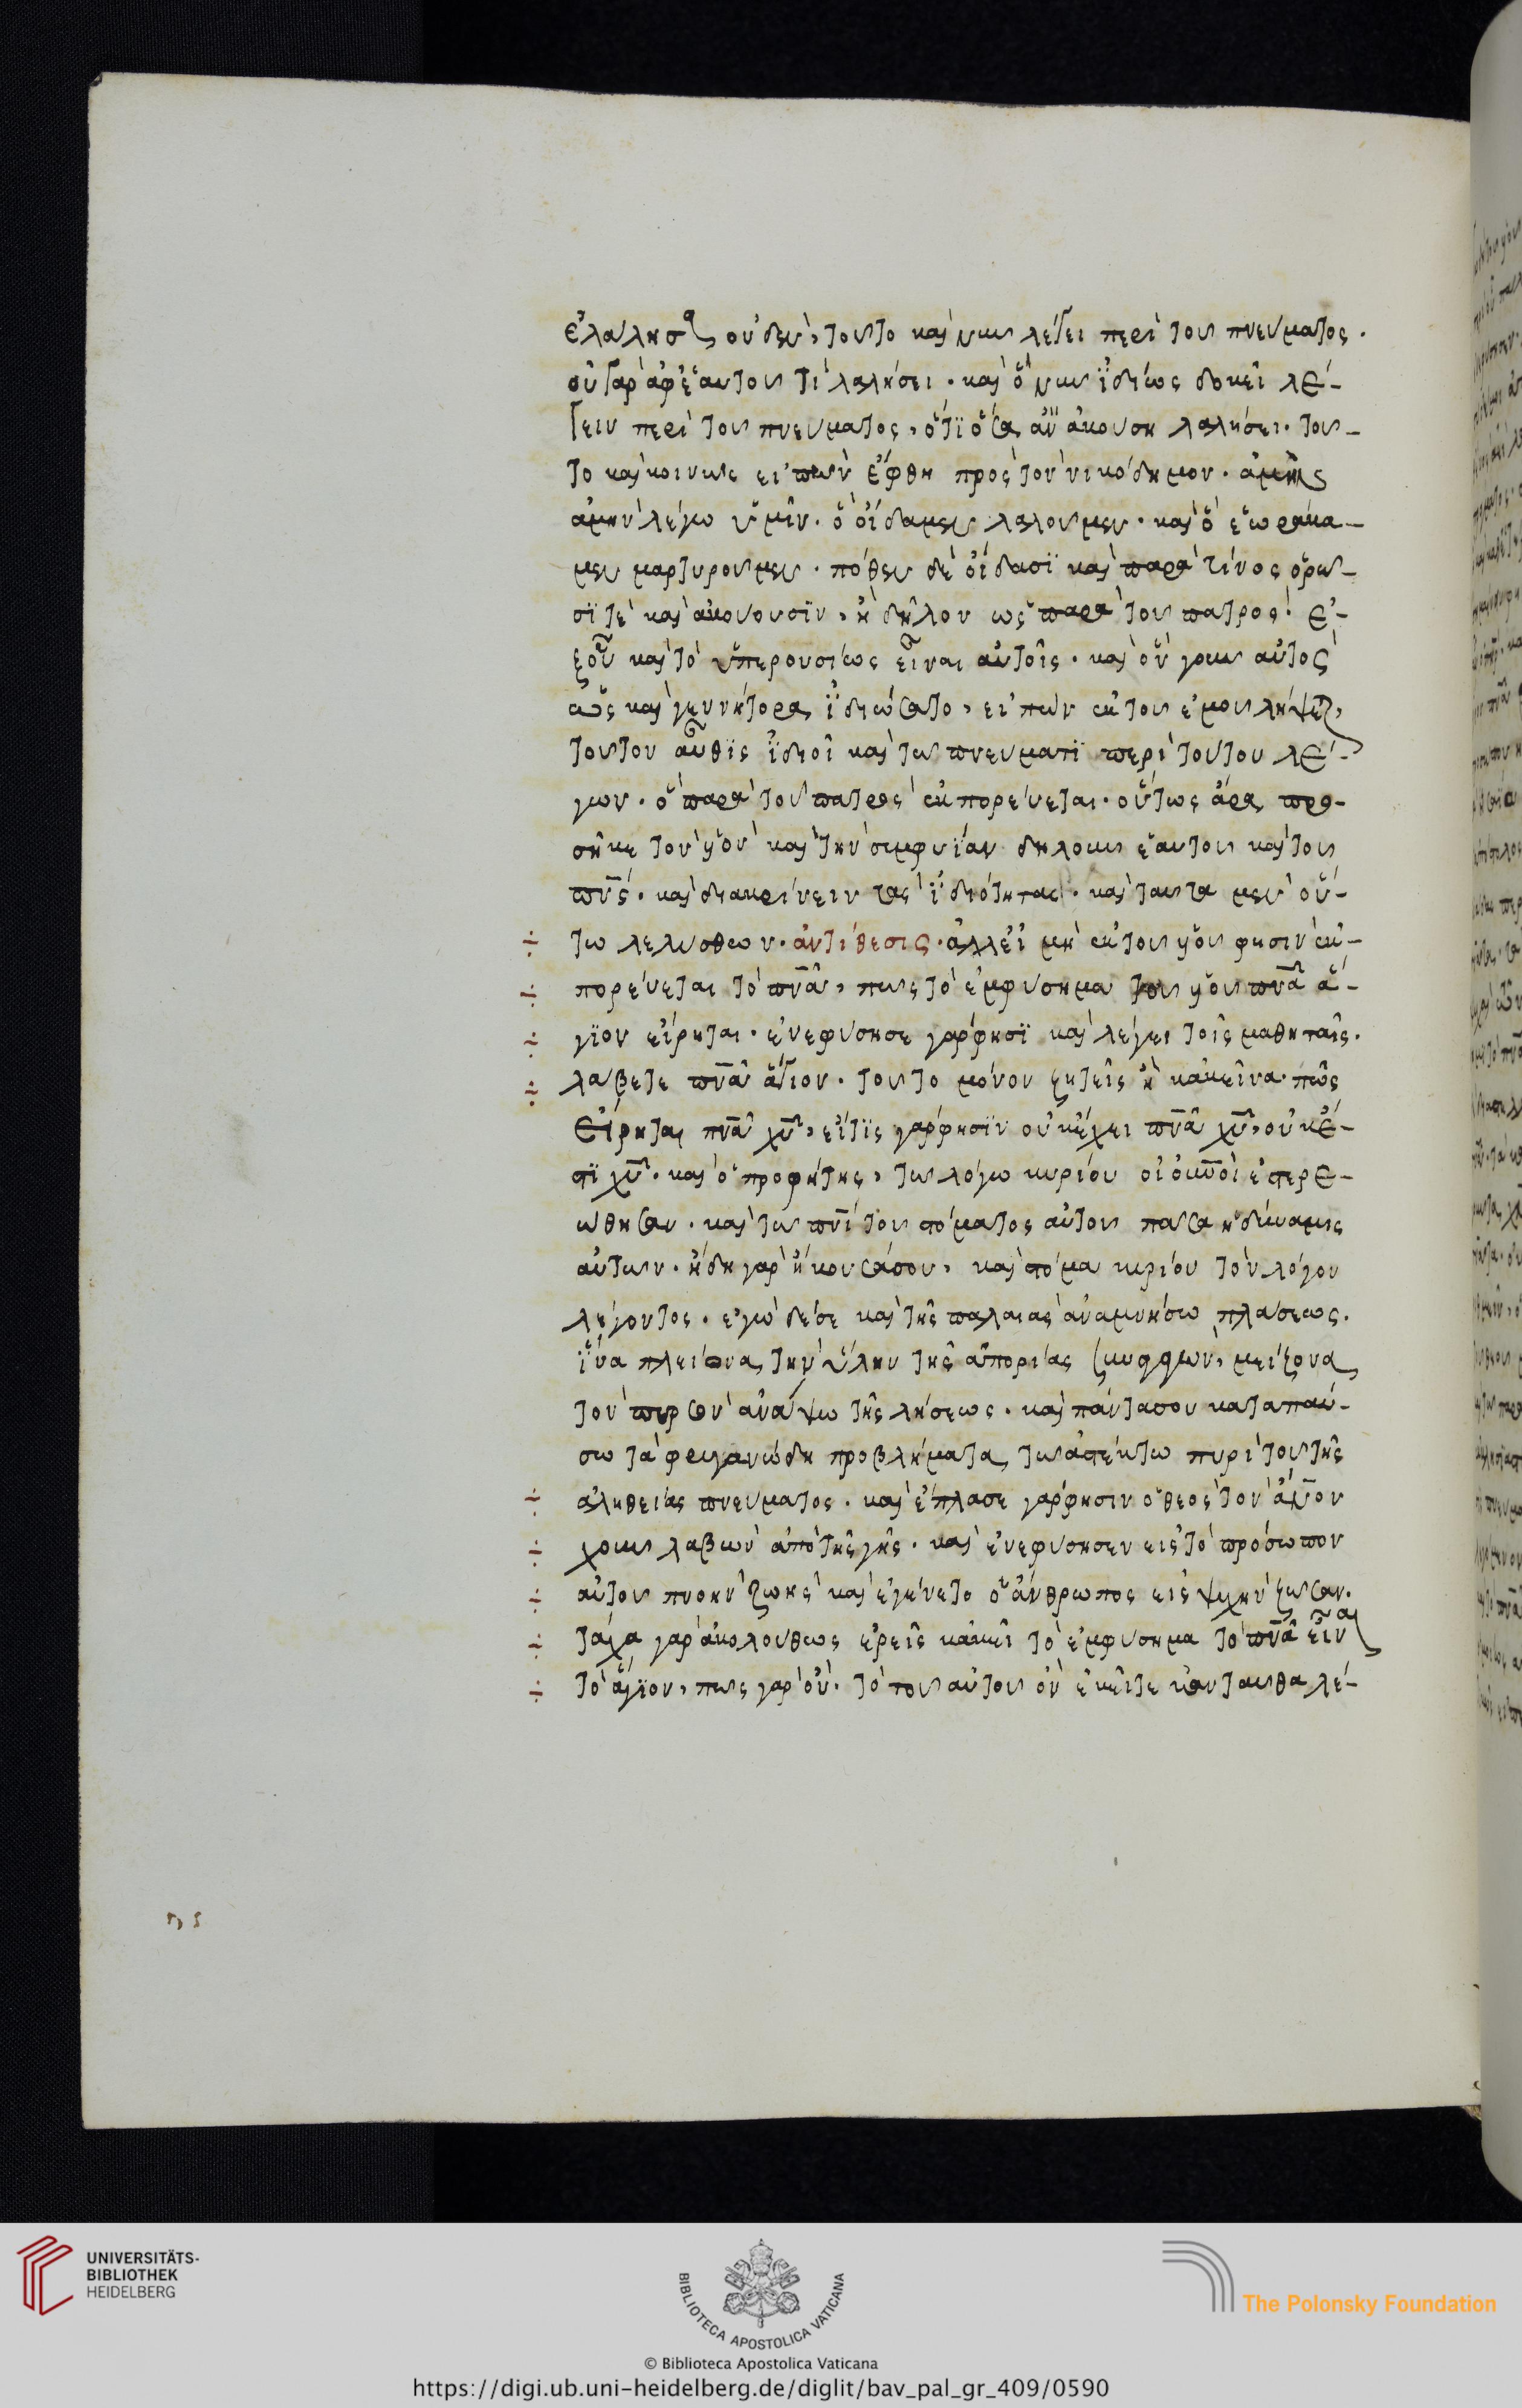 ἐλάλησα οὐδὲν, τοῦτο καὶ νῦν λέγει περὶ τοῦ πνεύματος.
οὐ γὰρ ἀφ' ἑαυτοῦ τι λαλήσει. καὶ ὃ νῦν ἰδίως δοκεῖ λέ-
γειν περὶ τοῦ πνεύματος, ὅτι ὅσα ἂν ἀκούση λαλήσει. τοῦ-
το καὶ κοινῶς εἰπὼν ἔφθη πρὸς τὸν νικόδημον. ἀμὴν
ἀμὴν λέγω ὑμῖν. ὃ οἴδαμεν λαλοῦμεν. καὶ ὃ ἑωράκα-
μεν μαρτυροῦμεν. πόθεν δὲ οἴδασι καὶ παρὰ τίνος ὁρῶ-
σί τε καὶ ἀκούουσιν, ἢ δῆλον ὡς παρὰ τοῦ πατρός! ἐ-
ξ οὗ καὶ τὸ ὑπερουσίως εἶναι αὐτοῖς. καὶ ὃν γοῦν αὐτὸς
ὡς καὶ γεννήτορα ἰδιώσατο, εἰπὼν ἐκ τοῦ ἐμοῦ λήψεται,
τοῦτον αὖθις ἰδιοῖ καὶ τῶ πνεύματι περὶ τούτου λέ-
γων. ὃ παρὰ τοῦ πατρὸς ἐκπορεύεται. οὕτως ἄρα προ-
σῆκε τὸν υἱὸν καὶ τὴν συμφυΐαν δηλοῦν ἑαυτοῦ καὶ τοῦ
πνς. καὶ διακρίνειν τὰς ἰδιότητας. καὶ ταῦτα μὲν οὕ-
τω λελύσθων. ἀντίθεσις. ἀλλ' εἰ μὴ ἐκ τοῦ υἱοῦ φησὶν ἐκ-
πορεύεται τὸ πνα, πῶς τὸ ἐμφύσημα τοῦ υἱοῦ πνα ἅ-
γιον εἴρηται. ἐνεφύσησε γὰρ φησὶ καὶ λέγει τοῖς μαθηταῖς.
λάβετε πνα ἅγιον. τοῦτο μόνον ζητεῖς ἢ κἀκεῖνα. πῶς
εἴρηται πνα χυ, εἴ τις γὰρ φησὶν οὐκ ἔχει πνα χυ, οὐκ ἔ-
στι χυ. καὶ ὁ προφήτης, τῶ λόγω κυρίου οἱ οὐνοὶ ἐστερε-
ώθησαν. καὶ τῶ πνι τοῦ στόματος αὐτοῦ πᾶσα ἡ δύναμις
αὐτῶν. ἤδη γὰρ ἤκουσά σου, καὶ στόμα κυρίου τὸν λόγον
λέγοντος. ἐγὼ δέ σε καὶ τῆς παλαιᾶς ἀναμνήσω πλάσεως.
ἵνα πλείονα τὴν ὕλην τῆς ἀπορίας ξυνα μείζονα
τὸν πυρσὸν ἀνάψω τῆς λύσεως. καὶ πάντα σου καταπαύ-
σω τὰ φρυγανώδη προβλήματα τῶ ἀστέκτω πυρὶ τοῦ τῆς
ἀληθείας πνεύματος. καὶ ἔπλασε γὰρ φησὶν ὁ θεὸς τὸν ἄνον
χοῦν λαβὼν ἀπὸ τῆς γῆς. καὶ ἐνεφύσησεν εἰς τὸ πρόσωπον
αὐτοῦ πνοὴν ζωῆς καὶ ἐγένετο ὁ ἄνθρωπος εἰς ψυχὴν ζῶσαν.
τάχα γὰρ ἀκολούθως ἐρεῖς κἀκεῖ τὸ ἐμφύσημα τὸ πνα εἶναι
τὸ ἅγιον, πῶς γὰρ οὐ. τὸ τοῦ αὐτοῦ ὂν ἐκεῖ τε κἀνταῦθα λέ-
UNIVERSITÄTS-
BIBLIOTHEK
HEIDELBERG
BIBLIOTECA APOSTOLICA VATICANA
The Polonsky Foundation
© Biblioteca Apostolica Vaticana
https://digi.ub.uni-heidelberg.de/diglit/bav_pal_gr_409/0590